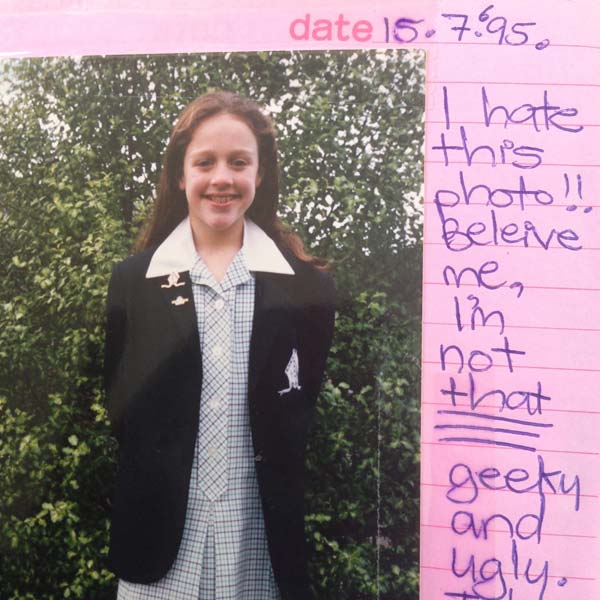 date 15.7.95.
6
I hate
this
photo!!
Beleive
me,
I'm
not
that
geeky
and
ugly.